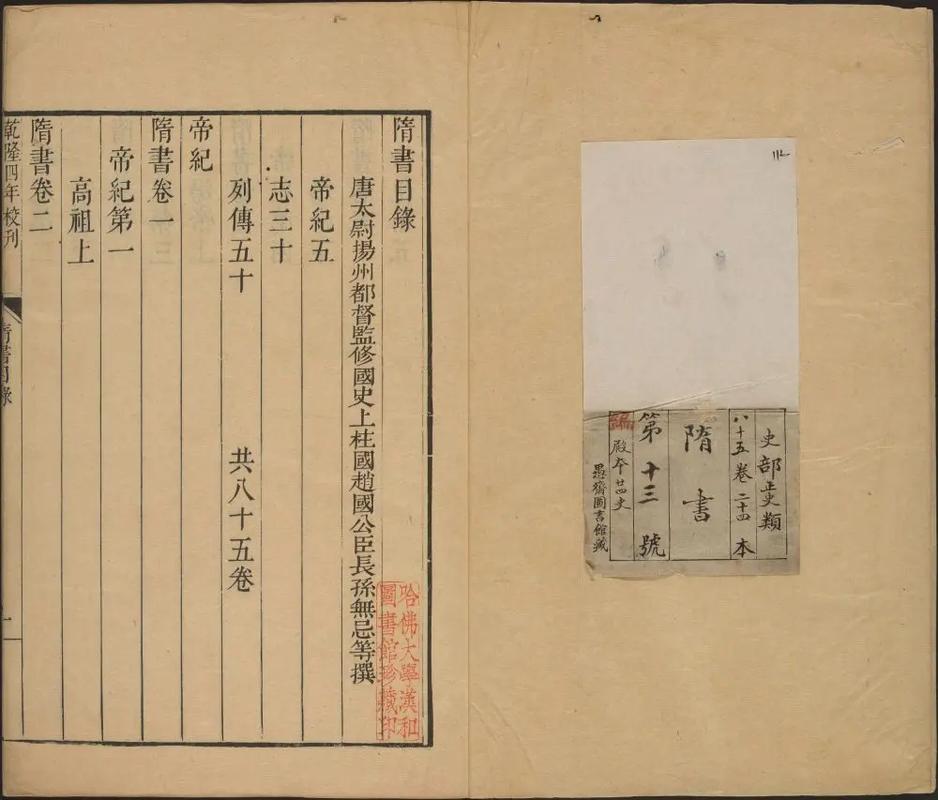 史部正史類
八十五卷 二十四本
隋書
第十三號
編
殿本廿四史
愚齋圖書館藏
隋書目錄
唐太尉揚州都督監修國史上柱國趙國公臣長孫無忌等撰
帝紀五
志三十
列傳五十 共八十五卷
帝紀
隋書卷一
帝紀第一
高祖上
隋書卷二
乾隆四年校刊
隋書目錄
一
哈佛大學漢和
圖書館珍藏印